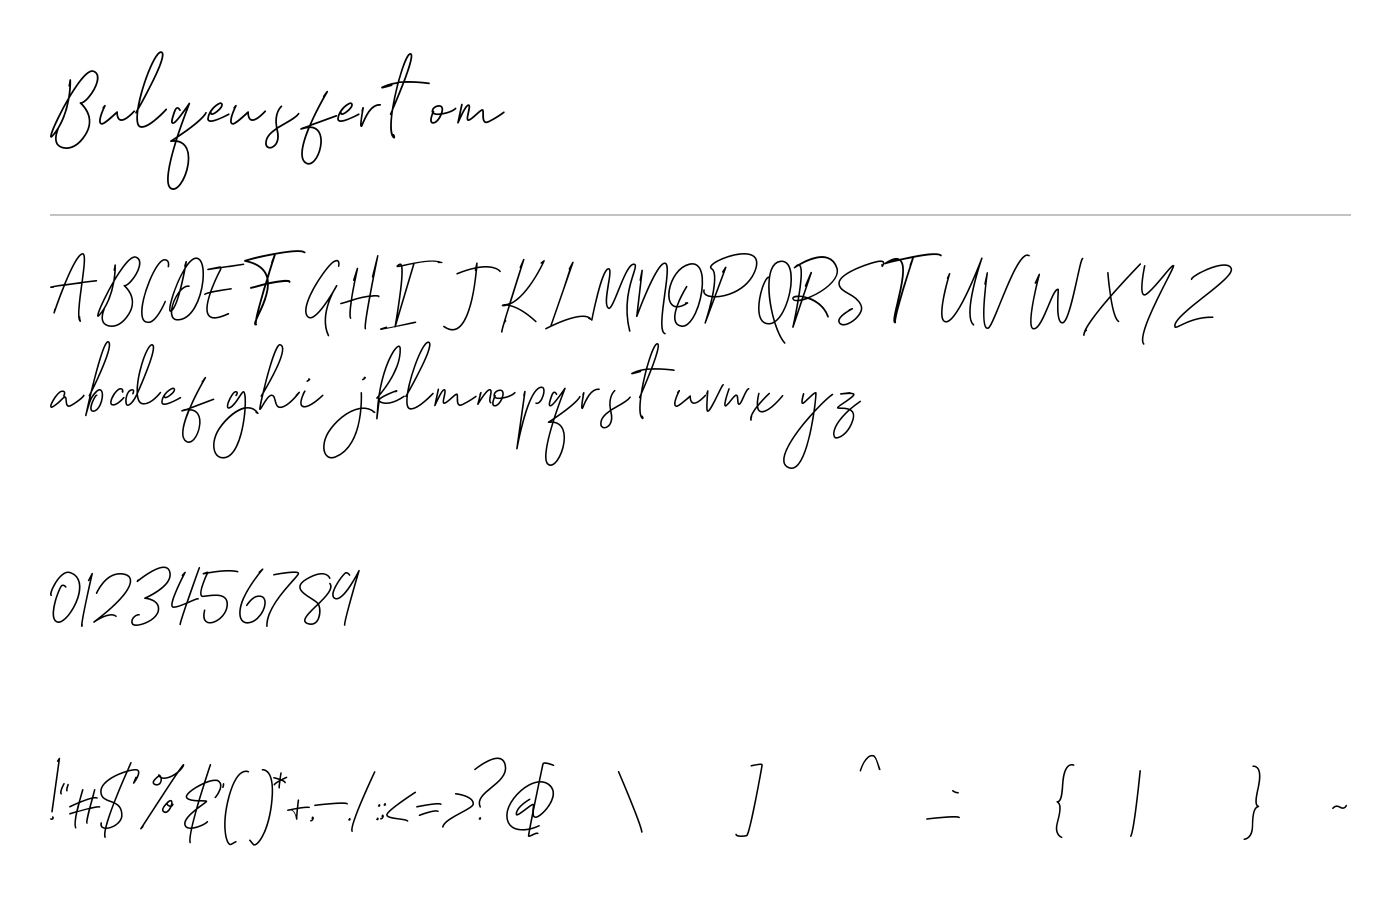 Bulqeusfert om
ABCDEFGHIJKLMNOPQRSTUVWXYZ
abcdefghijklmnopqrstuvwxyz
0123456789
!"#$%&'()*+,-./:;<=>?@[\]^_`{|}~